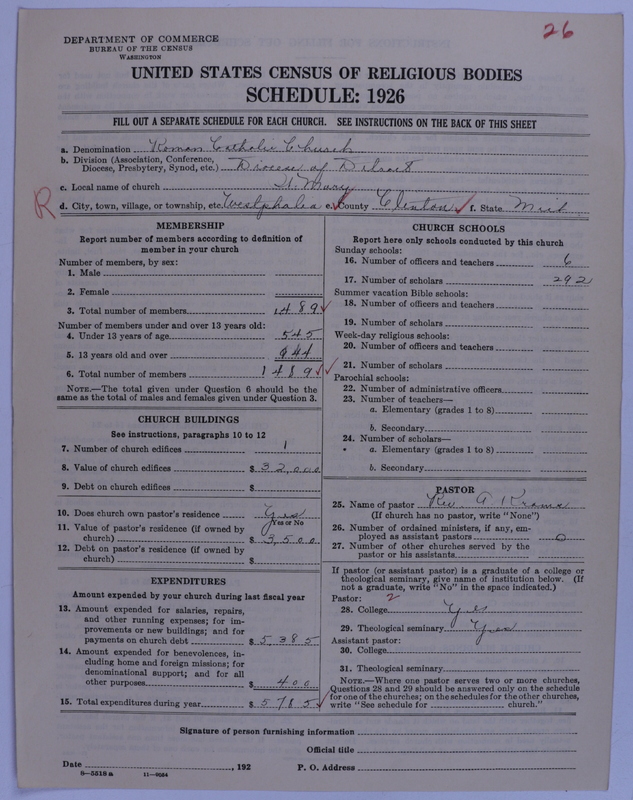 26
DEPARTMENT OF COMMERCE
BUREAU OF THE CENSUS
WASHINGTON
UNITED STATES CENSUS OF RELIGIOUS BODIES
SCHEDULE: 1926
FILL OUT A SEPARATE SCHEDULE FOR EACH CHURCH. SEE INSTRUCTIONS ON THE BACK OF THIS SHEET
a. Denomination Roman Catholic Church
b. Division (Association, Conference,
Diocese, Presbytery, Synod, etc.) Diocese of Detroit
c. Local name of church St. Mary
R d. City, town, village, or township, etc. Westphalia e. County Clinton f. State Mich
MEMBERSHIP
Report number of members according to definition of
member in your church
Number of members, by sex:
1. Male
2. Female
3. Total number of members 1489
Number of members under and over 13 years old:
4. Under 13 years of age 545
5. 13 years old and over 944
6. Total number of members 1489
NOTE.—The total given under Question 6 should be the
same as the total of males and females given under Question 3.
CHURCH BUILDINGS
See instructions, paragraphs 10 to 12
7. Number of church edifices 1
8. Value of church edifices $ 32,000
9. Debt on church edifices $
10. Does church own pastor's residence? Yes
Yes or No
11. Value of pastor's residence (if owned by
church) $ 3,500
12. Debt on pastor's residence (if owned by
church) $
EXPENDITURES
Amount expended by your church during last fiscal year
13. Amount expended for salaries, repairs,
and other running expenses; for im-
provements or new buildings; and for
payments on church debt $ 5,385
14. Amount expended for benevolences, in-
cluding home and foreign missions; for
denominational support; and for all
other purposes $ 400
15. Total expenditures during year $ 5785
CHURCH SCHOOLS
Report here only schools conducted by this church
Sunday schools:
16. Number of officers and teachers 6
17. Number of scholars 292
Summer vacation Bible schools:
18. Number of officers and teachers
19. Number of scholars
Week-day religious schools:
20. Number of officers and teachers
21. Number of scholars
Parochial schools:
22. Number of administrative officers
23. Number of teachers—
a. Elementary (grades 1 to 8)
b. Secondary
24. Number of scholars—
a. Elementary (grades 1 to 8)
b. Secondary
PASTOR
25. Name of pastor Rev A
(If church has no pastor, write "None")
26. Number of ordained ministers, if any, em-
ployed as assistant pastors 0
27. Number of other churches served by the
pastor or his assistants
If pastor (or assistant pastor) is a graduate of a college or
theological seminary, give name of institution below. (If
not a graduate, write "No" in the space indicated.)
Pastor: 2
28. College Yes
29. Theological seminary Yes
Assistant pastor:
30. College
31. Theological seminary
NOTE.—Where one pastor serves two or more churches,
Questions 28 and 29 should be answered only on the schedule
for one of the churches; on the schedules for the other churches,
write "See schedule for church."
Signature of person furnishing information
Official title
Date , 192 P. O. Address
8—5518a 11—9554